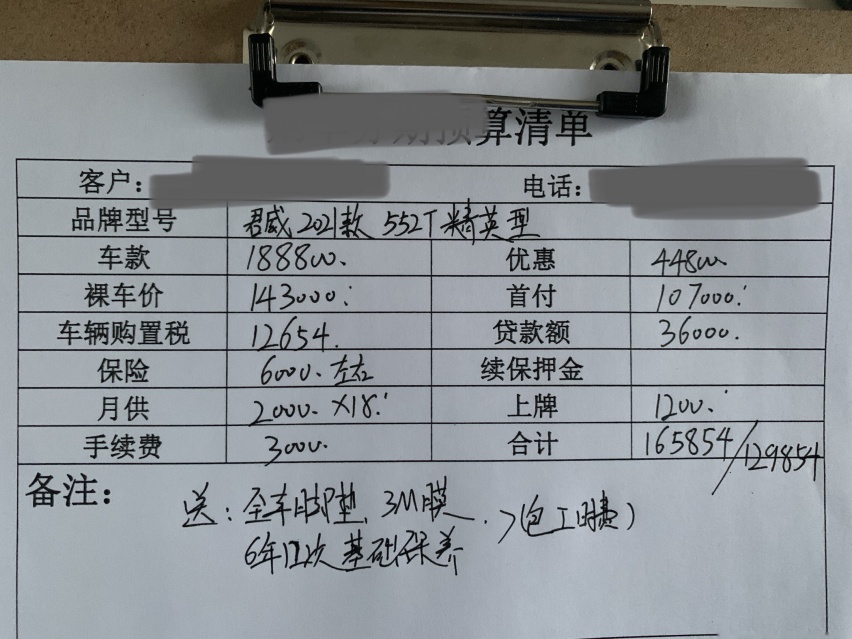 算清单
客户： 电话：
品牌型号 君威 2021款 552T 精英型
车款 188800. 优惠 44800
裸车价 143000. 首付 107000.
车辆购置税 12654. 贷款额 36000.
保险 6000. 左右 续保押金
月供 2000. ×18. 上牌 1200.
手续费 3000. 合计 165854/129854
备注： 送：全车脚垫、3M膜、>(包工时费)
6年12次基础保养